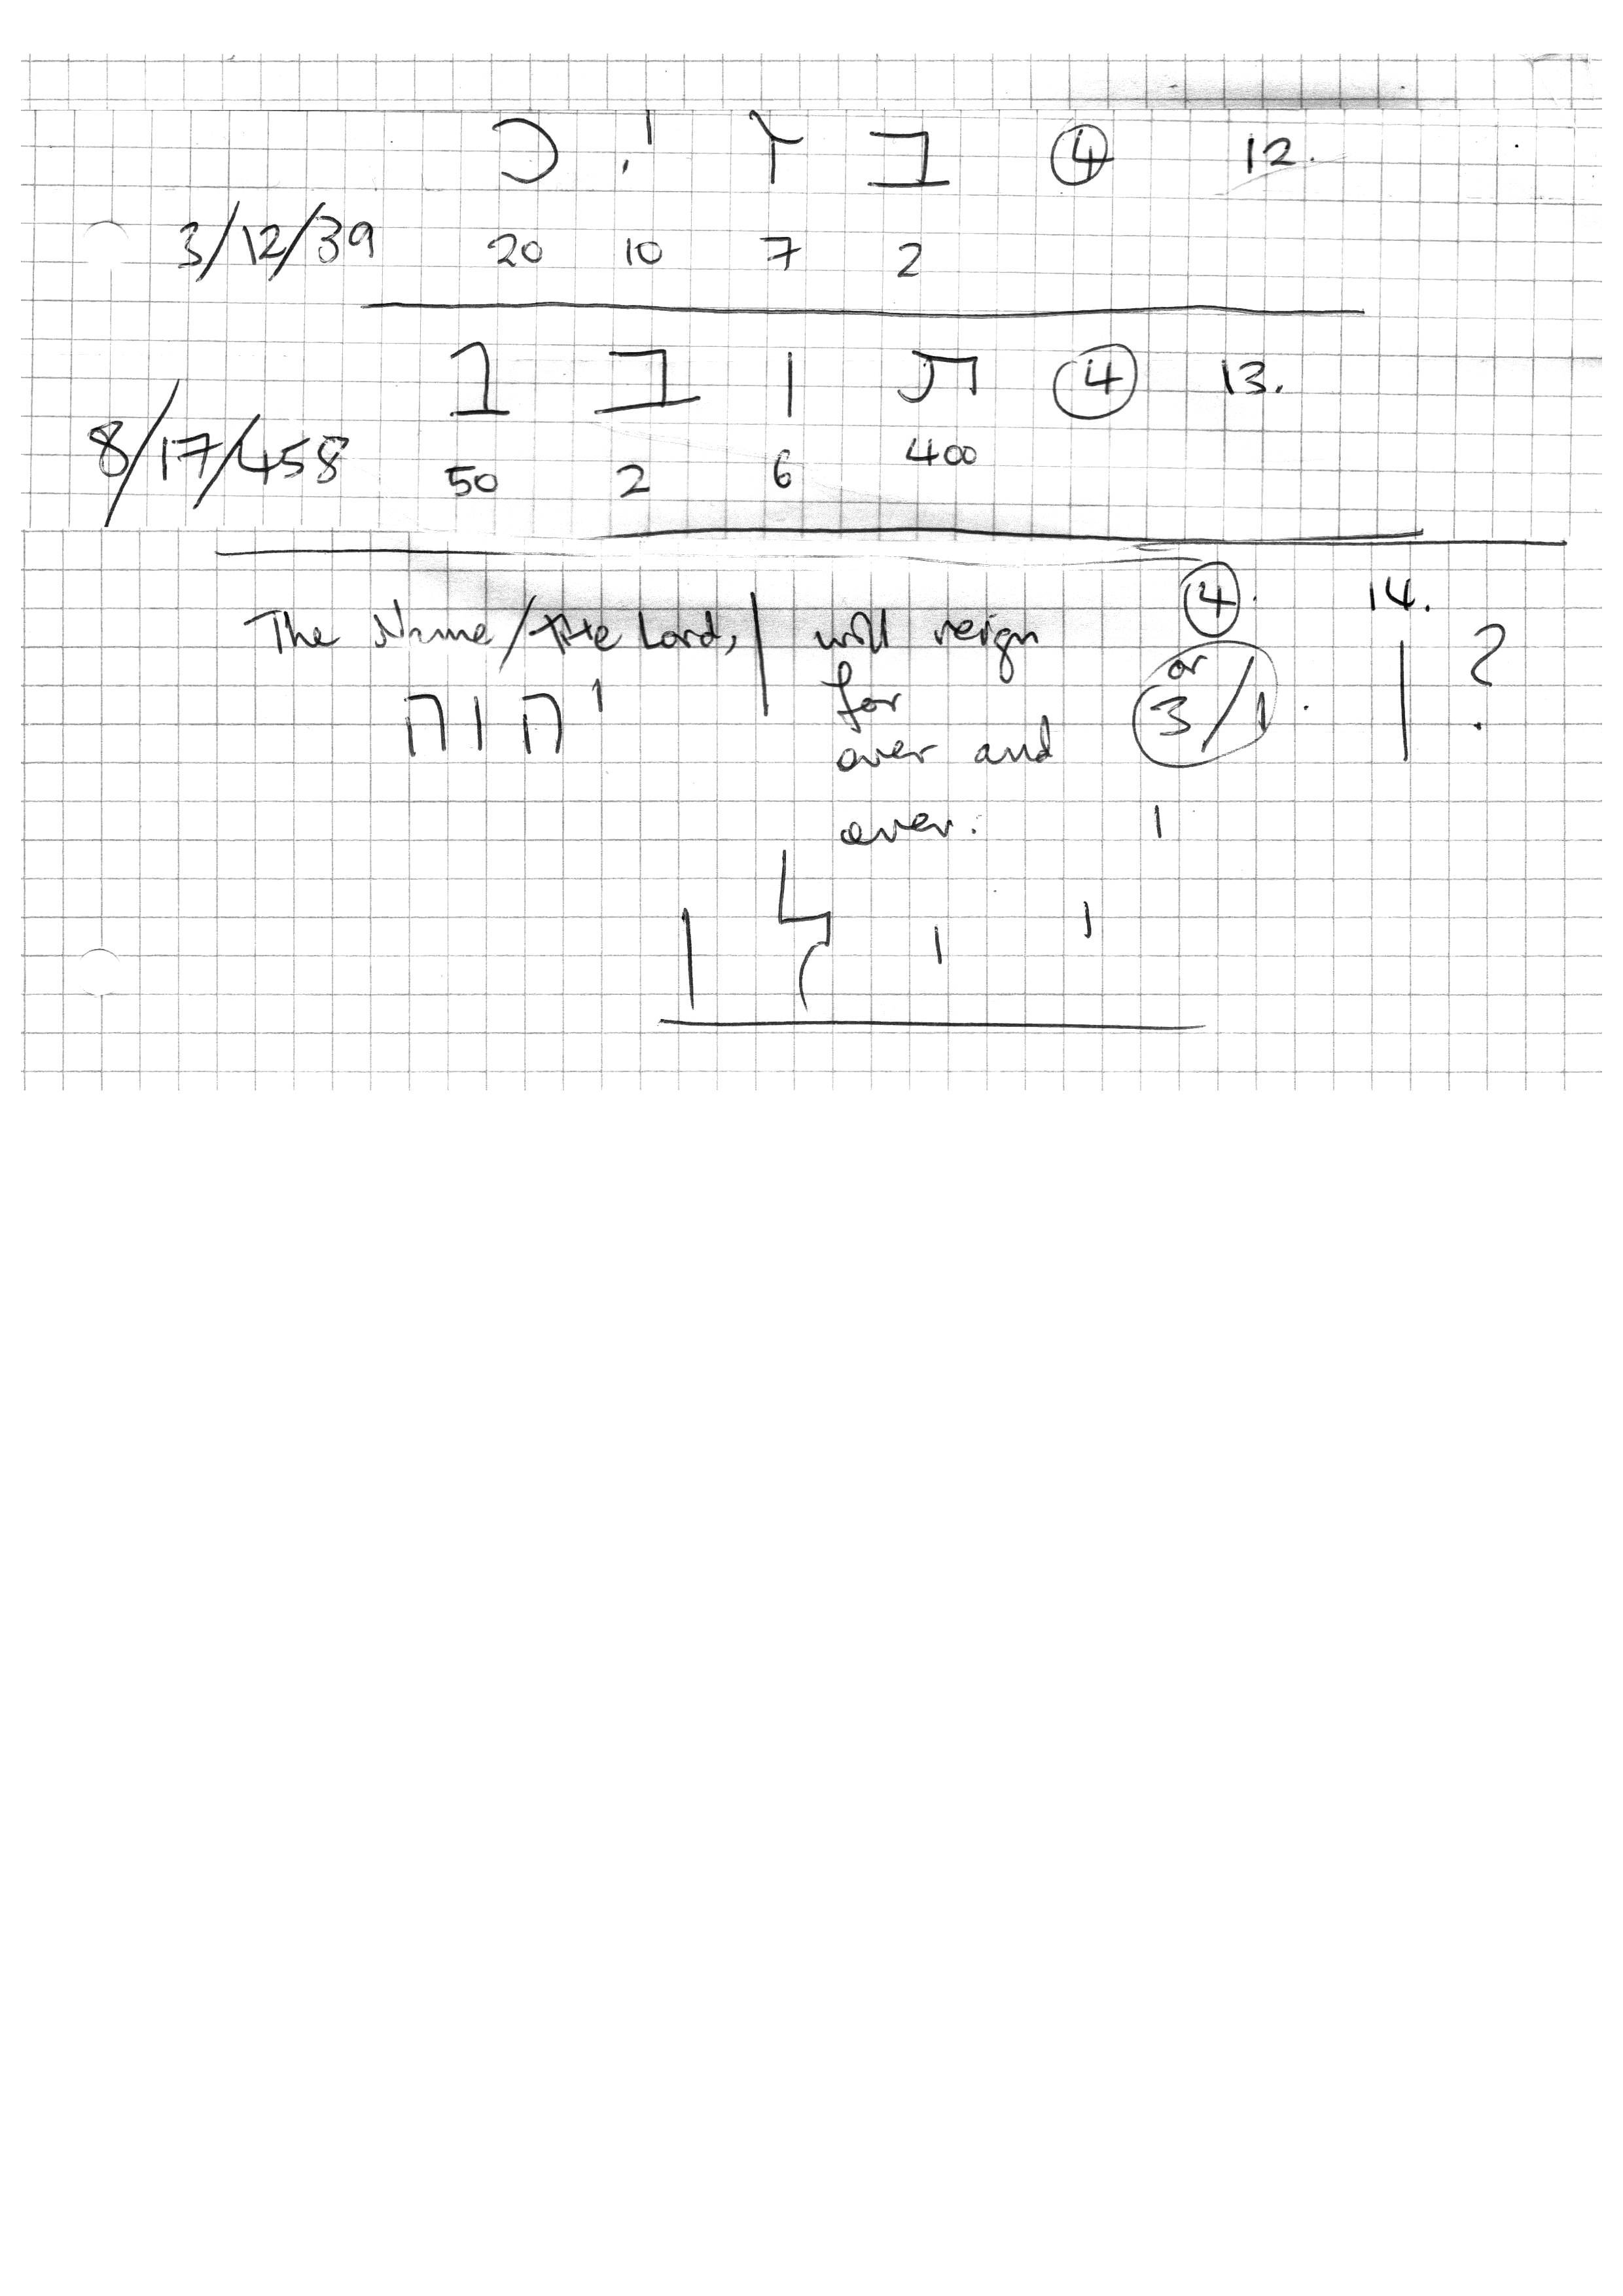 12. ④ ב ז י כ
3/12/39 20 10 7 2
13. ④ ת ו ב נ
8/17/458 50 2 6 400
④ 14.
The Name/the Lord, | will reign or ?
יהוה for 3/1.
ever and
ever. י
י י ל ן